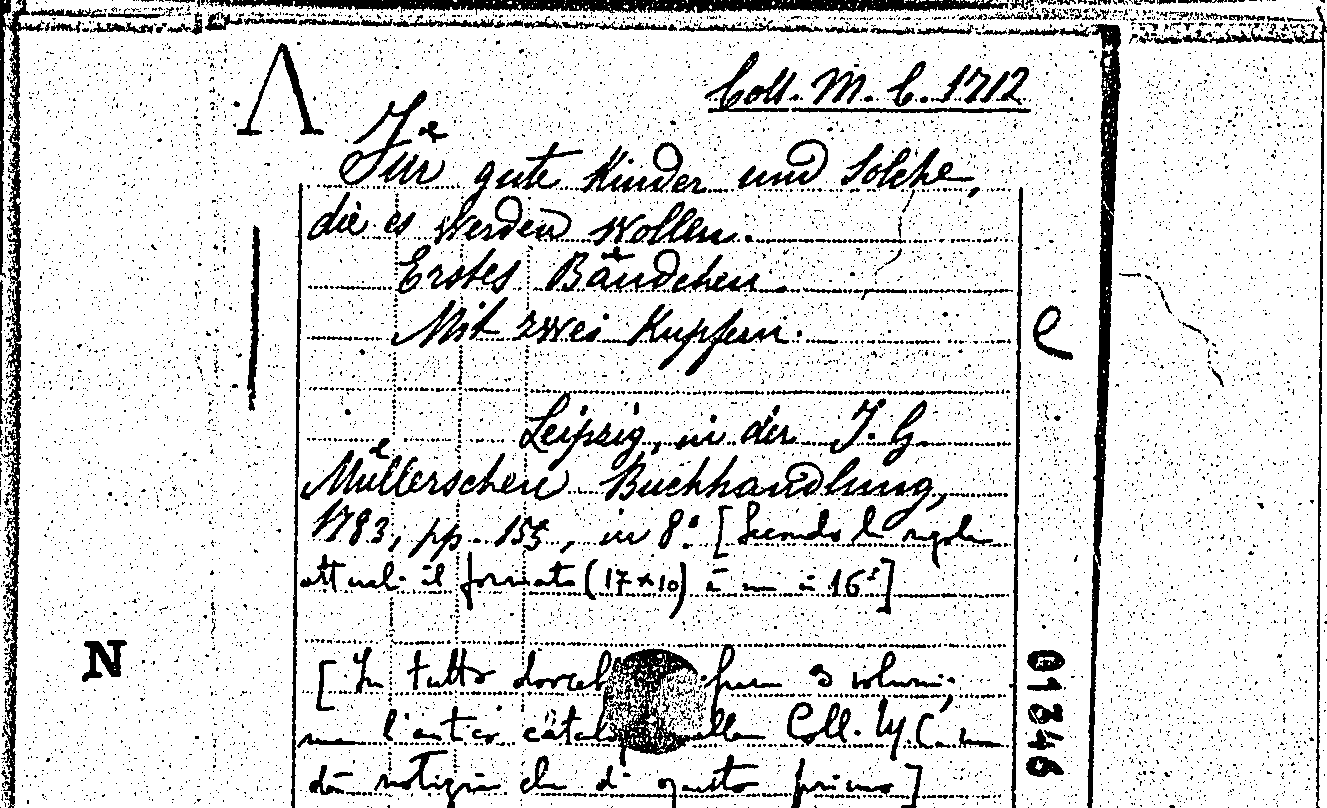 Λ
Coll. M. C. 1712
Für gute Kinder und solche,
die es werden wollen.
Erstes Bändchen.
Mit zwei Kupfern.
e
Leipzig, in der J. G.
Müllerschen Buchhandlung,
1783, pp. 155, in 8.° [Secondo le regole
attuali il formato (17×10) è un in 16°]
N
01346
[In tutto 3 volumi,
ma l'antico Coll. M C.
dà notizia che di questo primo]